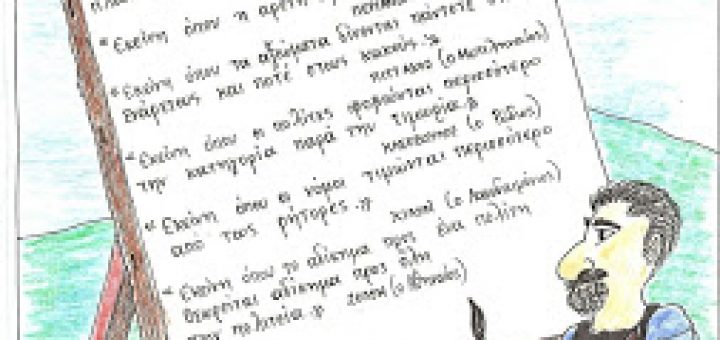 "Εκείνη όπου η αρετή
"Εκείνη όπου τα αξιώματα δίνονται πάντοτε στους
ενάρετους και ποτέ στους κακούς."
ΠΙΤΤΑΚΟΣ (ο Μυτιληναίος)
"Εκείνη όπου οι πολίτες φοβούνται περισσότερο
την κατηγορία παρά την τιμωρία."
ΚΛΕΟΒΟΥΛΟΣ (ο Ρόδιος)
"Εκείνη όπου οι νόμοι τιμώνται περισσότερο
από τους ρήτορες."
ΧΙΛΩΝ (ο Λακεδαιμόνιος)
"Εκείνη όπου το αδίκημα προς ένα πολίτη
θεωρείται αδίκημα προς όλη
την πολιτεία."
ΣΟΛΩΝ (ο Αθηναίος)